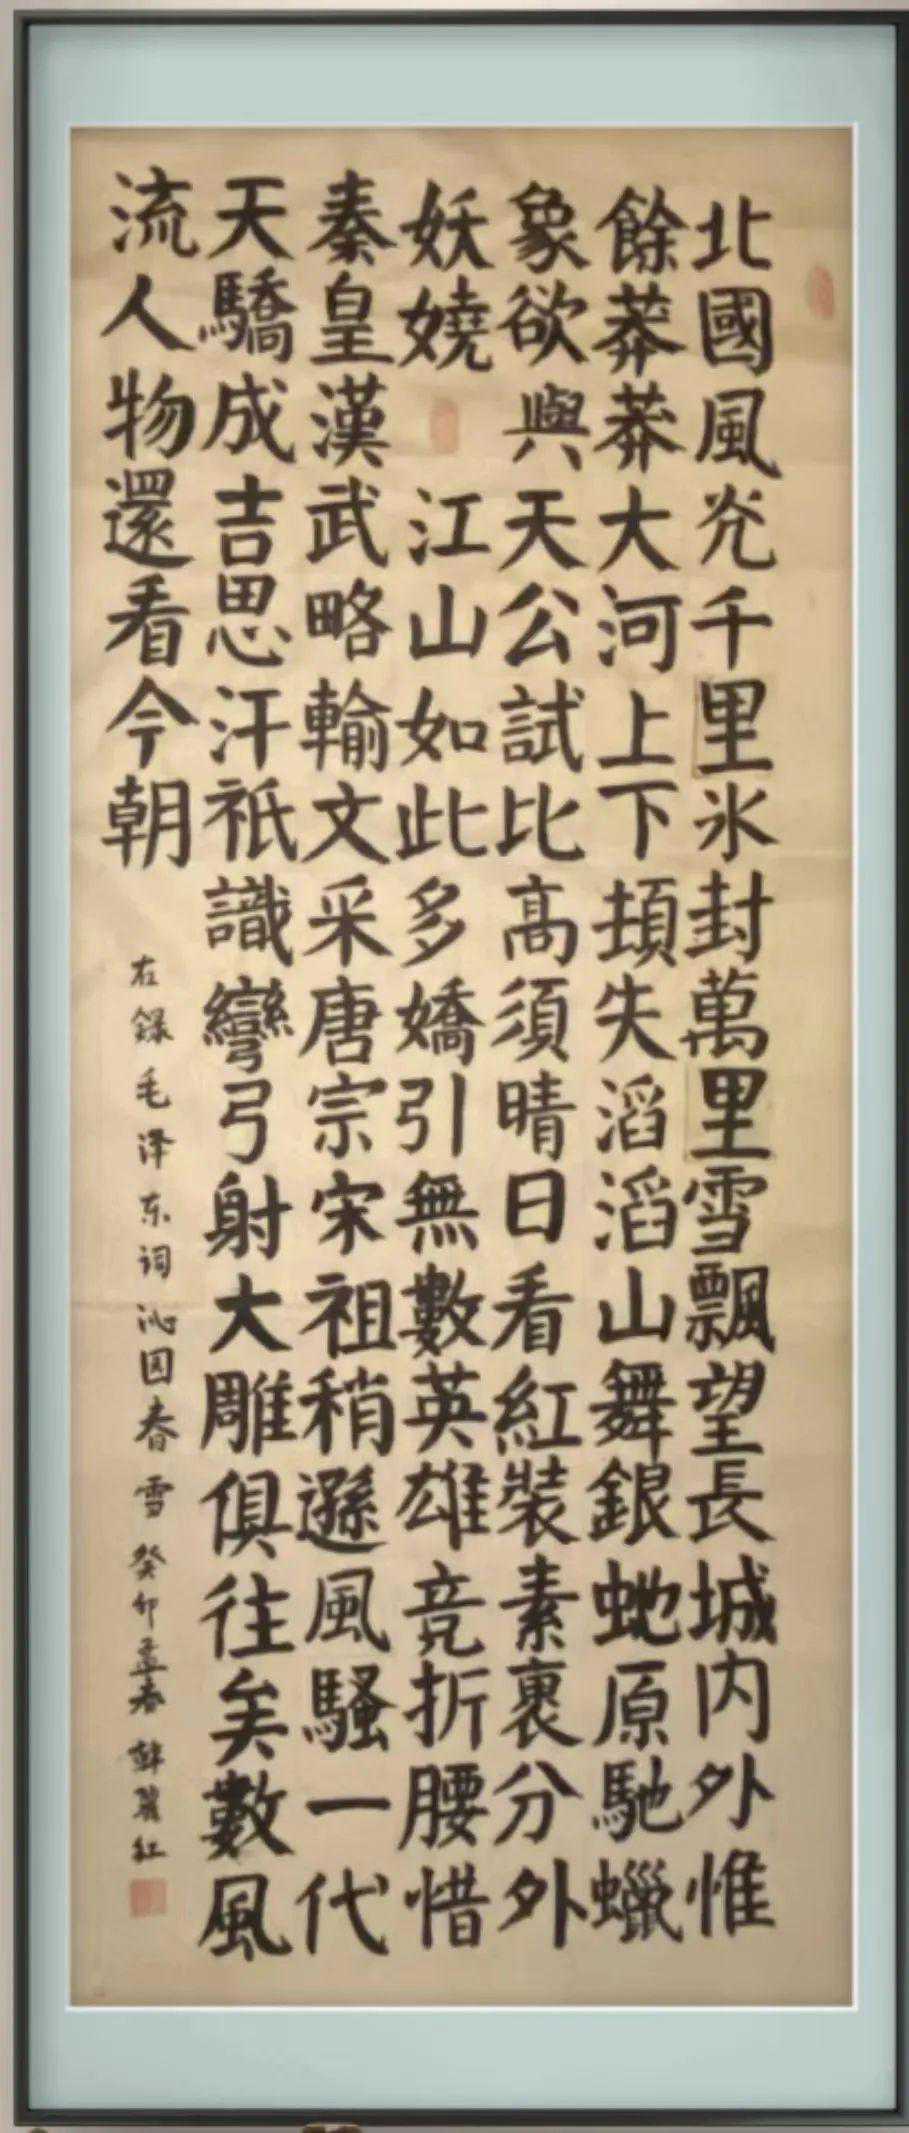 北國風光千里氷封萬里雪飄望長城内外惟
餘莽莽大河上下頓失滔滔山舞銀虵原馳蠟
象欲與天公試比高須晴日看紅裝素裹分外
妖嬈 江山如此多嬌引無數英雄竞折腰惜
秦皇漢武略輸文采唐宗宋祖稍遜風騷一代
天驕成吉思汗祇識彎弓射大雕俱往矣數風
流人物還看今朝
右錄毛泽东词沁园春雪癸卯孟春韩碧红